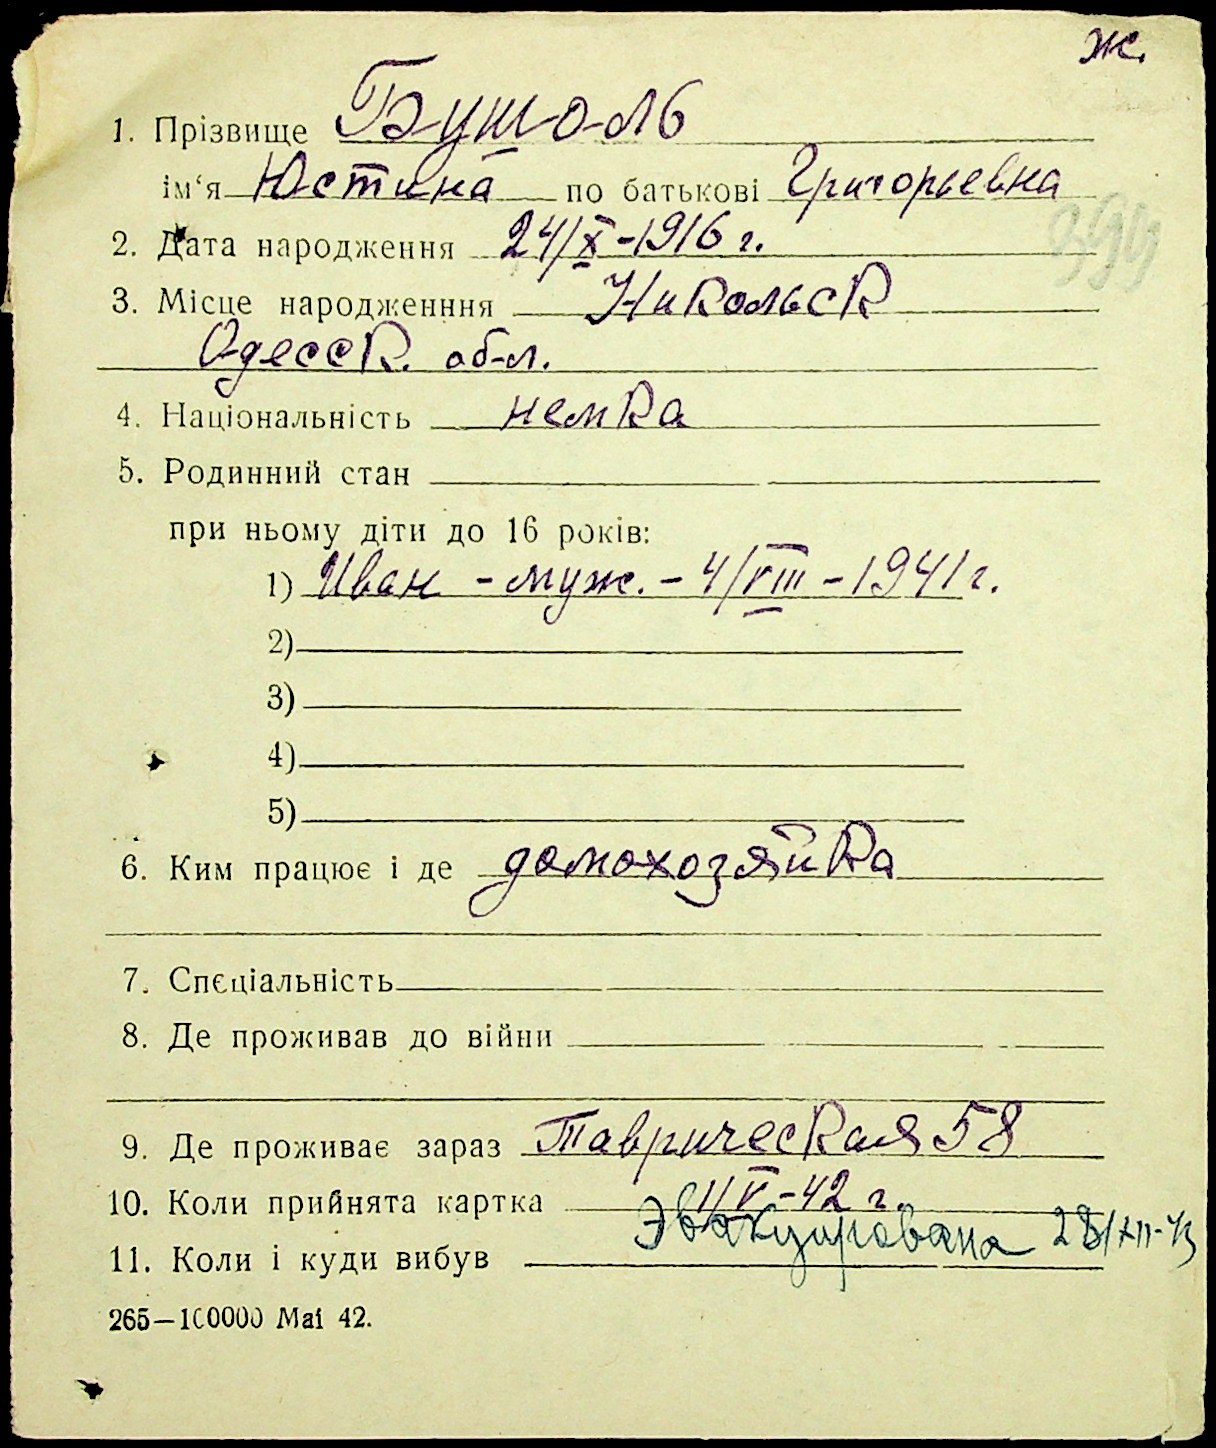 ж.
1. Прізвище Бушоль
ім‘я Юстина по батькові Григорьевна
2. Дата народження 24/X-1916 г.
3. Місце народженння Никольск
Одесск. обл.
4. Національність немка
5. Родинний стан
при ньому діти до 16 років:
1) Иван - муж. - 4/VIII - 1941 г.
2)
3)
4)
5)
6. Ким працює і де домохозяйка
7. Спєціальність
8. Де проживав до війни
9. Де проживає зараз Таврическая 58
10. Коли прийнята картка 11/V-42 г.
11. Коли і куди вибув Эвакуирована 28/XII-43
265—100000 Mai 42.